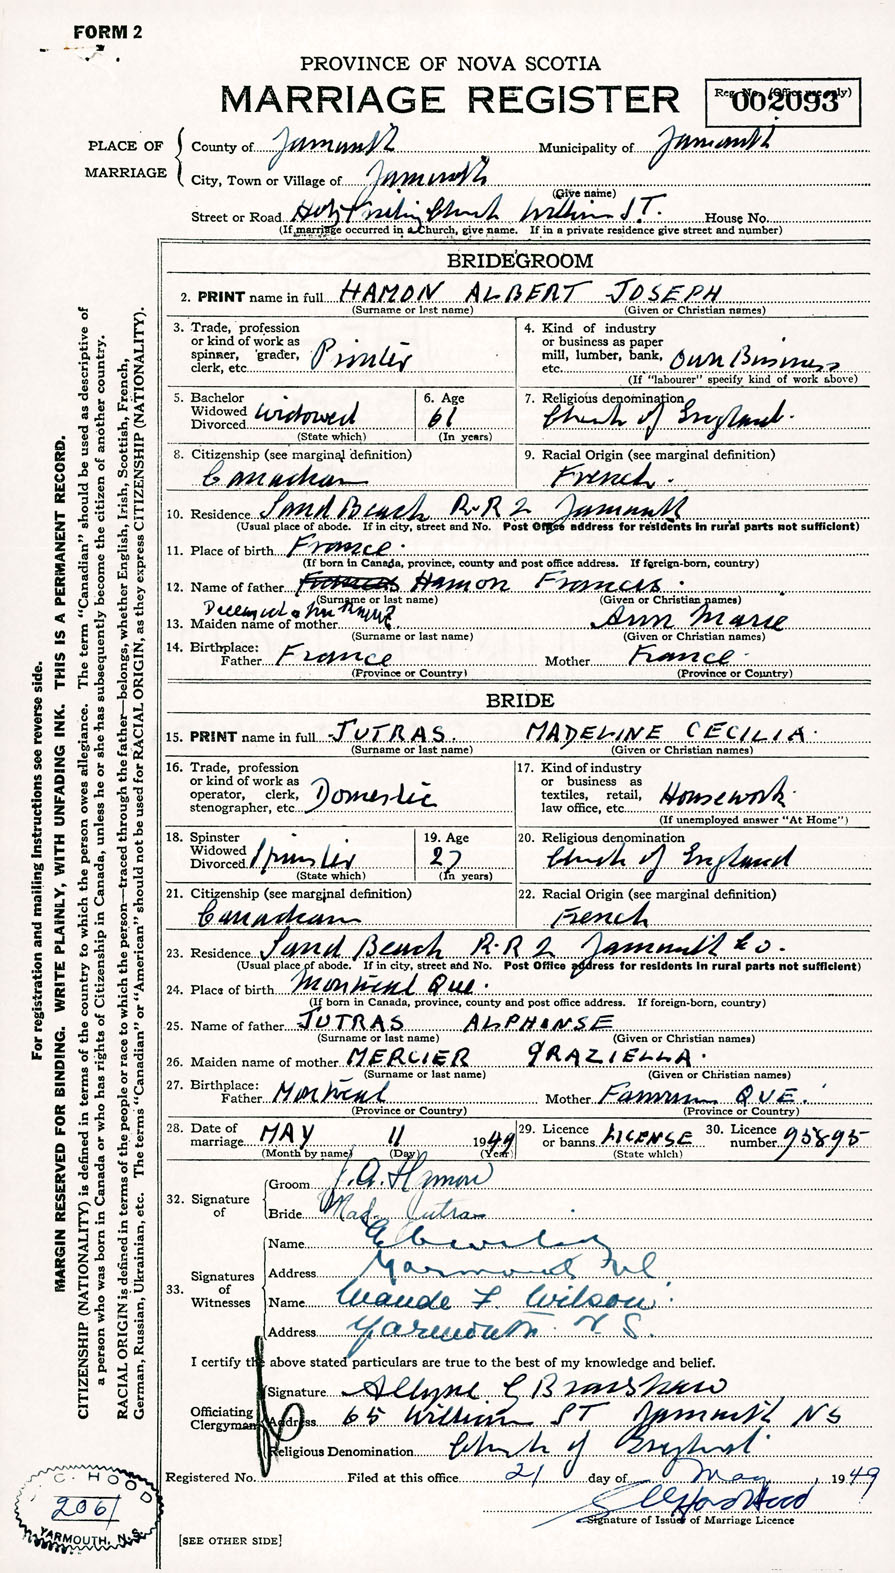 FORM 2
PROVINCE OF NOVA SCOTIA
MARRIAGE REGISTER
Reg. No. (Office use only)
002093
PLACE OF MARRIAGE
County of Yarmouth Municipality of Yarmouth
City, Town or Village of Yarmouth
(Give name)
Street or Road Holy Trinity Church William ST. House No.
(If marriage occurred in a Church, give name. If in a private residence give street and number)
BRIDEGROOM
2. PRINT name in full HAMON ALBERT JOSEPH
(Surname or last name) (Given or Christian names)
3. Trade, profession or kind of work as spinner, grader, clerk, etc. Printer
4. Kind of industry or business as paper mill, lumber, bank, etc. Own Business
(If "labourer" specify kind of work above)
5. Bachelor Widowed Divorced Widowed
(State which)
6. Age 61
(In years)
7. Religious denomination Church of England.
8. Citizenship (see marginal definition) Canadian
9. Racial Origin (see marginal definition) French.
10. Residence Sand Beach R.R 2 Yarmouth
(Usual place of abode. If in city, street and No. Post Office address for residents in rural parts not sufficient)
11. Place of birth France.
(If born in Canada, province, county and post office address. If foreign-born, country)
12. Name of father Hamon Frances.
(Surname or last name) (Given or Christian names)
Deceased
13. Maiden name of mother Ann Marie
(Surname or last name) (Given or Christian names)
14. Birthplace: Father France Mother France.
(Province or Country) (Province or Country)
BRIDE
15. PRINT name in full JUTRAS. MADELINE CECILIA.
(Surname or last name) (Given or Christian names)
16. Trade, profession or kind of work as operator, clerk, stenographer, etc. Domestic
17. Kind of industry or business as textiles, retail, law office, etc. Housework.
(If unemployed answer "At Home")
18. Spinster Widowed Divorced Spinster
(State which)
19. Age 27
(In years)
20. Religious denomination Church of England
21. Citizenship (see marginal definition) Canadian
22. Racial Origin (see marginal definition) French
23. Residence Sand Beach R.R 2 Yarmouth Co.
(Usual place of abode. If in city, street and No. Post Office address for residents in rural parts not sufficient)
24. Place of birth Montreal Que.
(If born in Canada, province, county and post office address. If foreign-born, country)
25. Name of father JUTRAS ALPHONSE
(Surname or last name) (Given or Christian names)
26. Maiden name of mother MERCIER GRAZIELLA.
(Surname or last name) (Given or Christian names)
27. Birthplace: Father Montreal Mother QUE.
(Province or Country) (Province or Country)
28. Date of marriage MAY 11 1949
(Month by name) (Day) (Year)
29. Licence or banns LICENSE
(State which)
30. Licence number 95895
32. Signature of
Groom J. A. Hamon
Bride Mad. Jutras
33. Signatures of Witnesses
Name
Address Yarmouth
Name Maude F. Wilson.
Address Yarmouth N.S.
I certify the above stated particulars are true to the best of my knowledge and belief.
Officiating Clergyman
Signature Allyne G Bradshaw
Address 65 William ST Yarmouth NS
Religious Denomination Church of England
Registered No. Filed at this office 21 day of May, 1949
Signature of Issuer of Marriage Licence
[SEE OTHER SIDE]
C. HOOD
2061
YARMOUTH, N.S.
For registration and mailing instructions see reverse side.
MARGIN RESERVED FOR BINDING. WRITE PLAINLY, WITH UNFADING INK. THIS IS A PERMANENT RECORD.
CITIZENSHIP (NATIONALITY) is defined in terms of the country to which the person owes allegiance. The term "Canadian" should be used as descriptive of
a person who was born in Canada or who has rights of Citizenship in Canada, unless he or she has subsequently become the citizen of another country.
RACIAL ORIGIN is defined in terms of the people or race to which the person—traced through the father—belongs, whether English, Irish, Scottish, French,
German, Russian, Ukrainian, etc. The terms "Canadian" or "American" should not be used for RACIAL ORIGIN, as they express CITIZENSHIP (NATIONALITY).